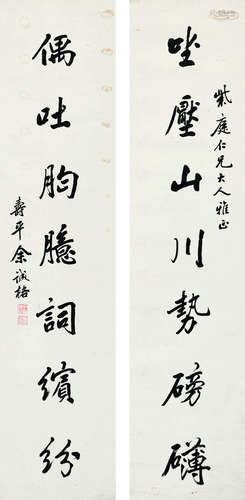 紫庭仁兄大人雅正
坐壓山川勢磅礴
偶吐胸臆詞繽紛
壽平余誠格